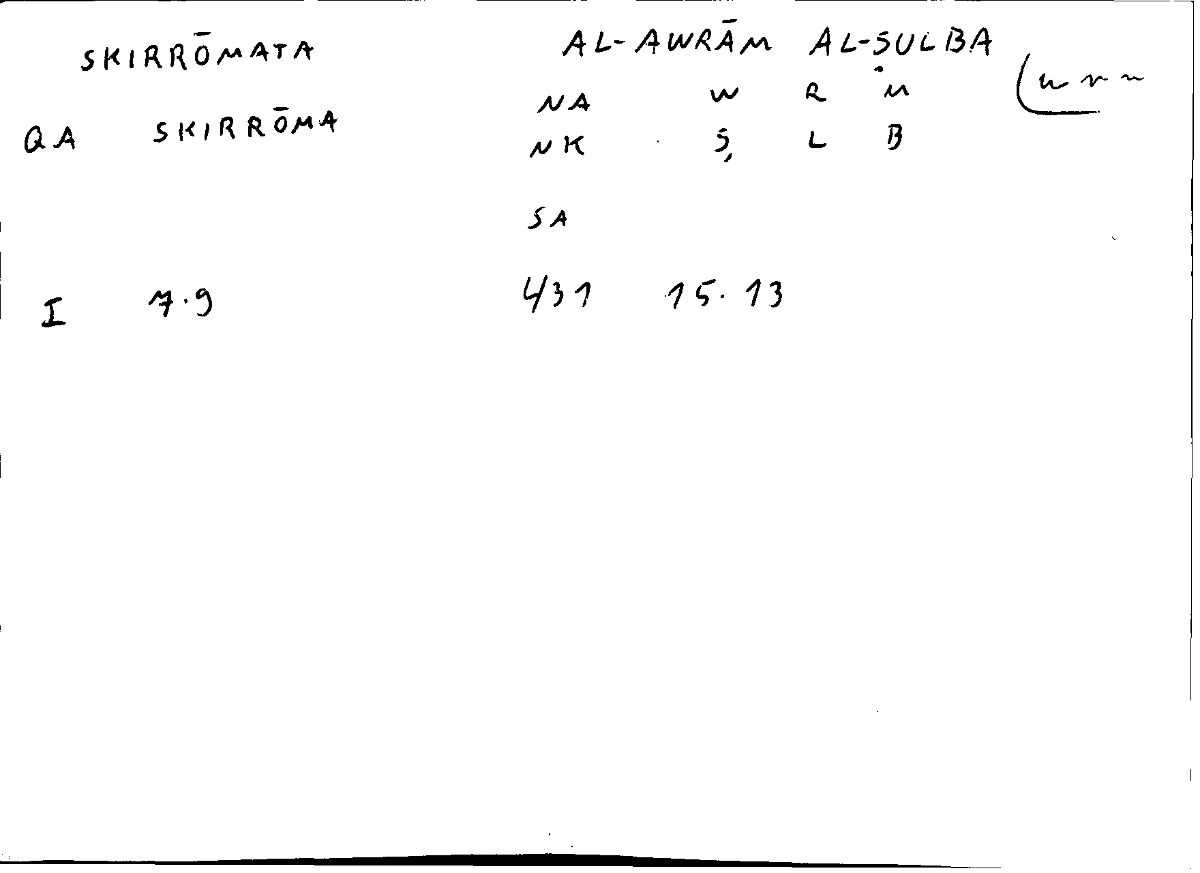 SKIRRŌMATA AL-AWRĀM AL-ṢULBA
NA W R M
QA SKIRRŌMA NK Ṣ L B
SA
I 7.9 431 15.13